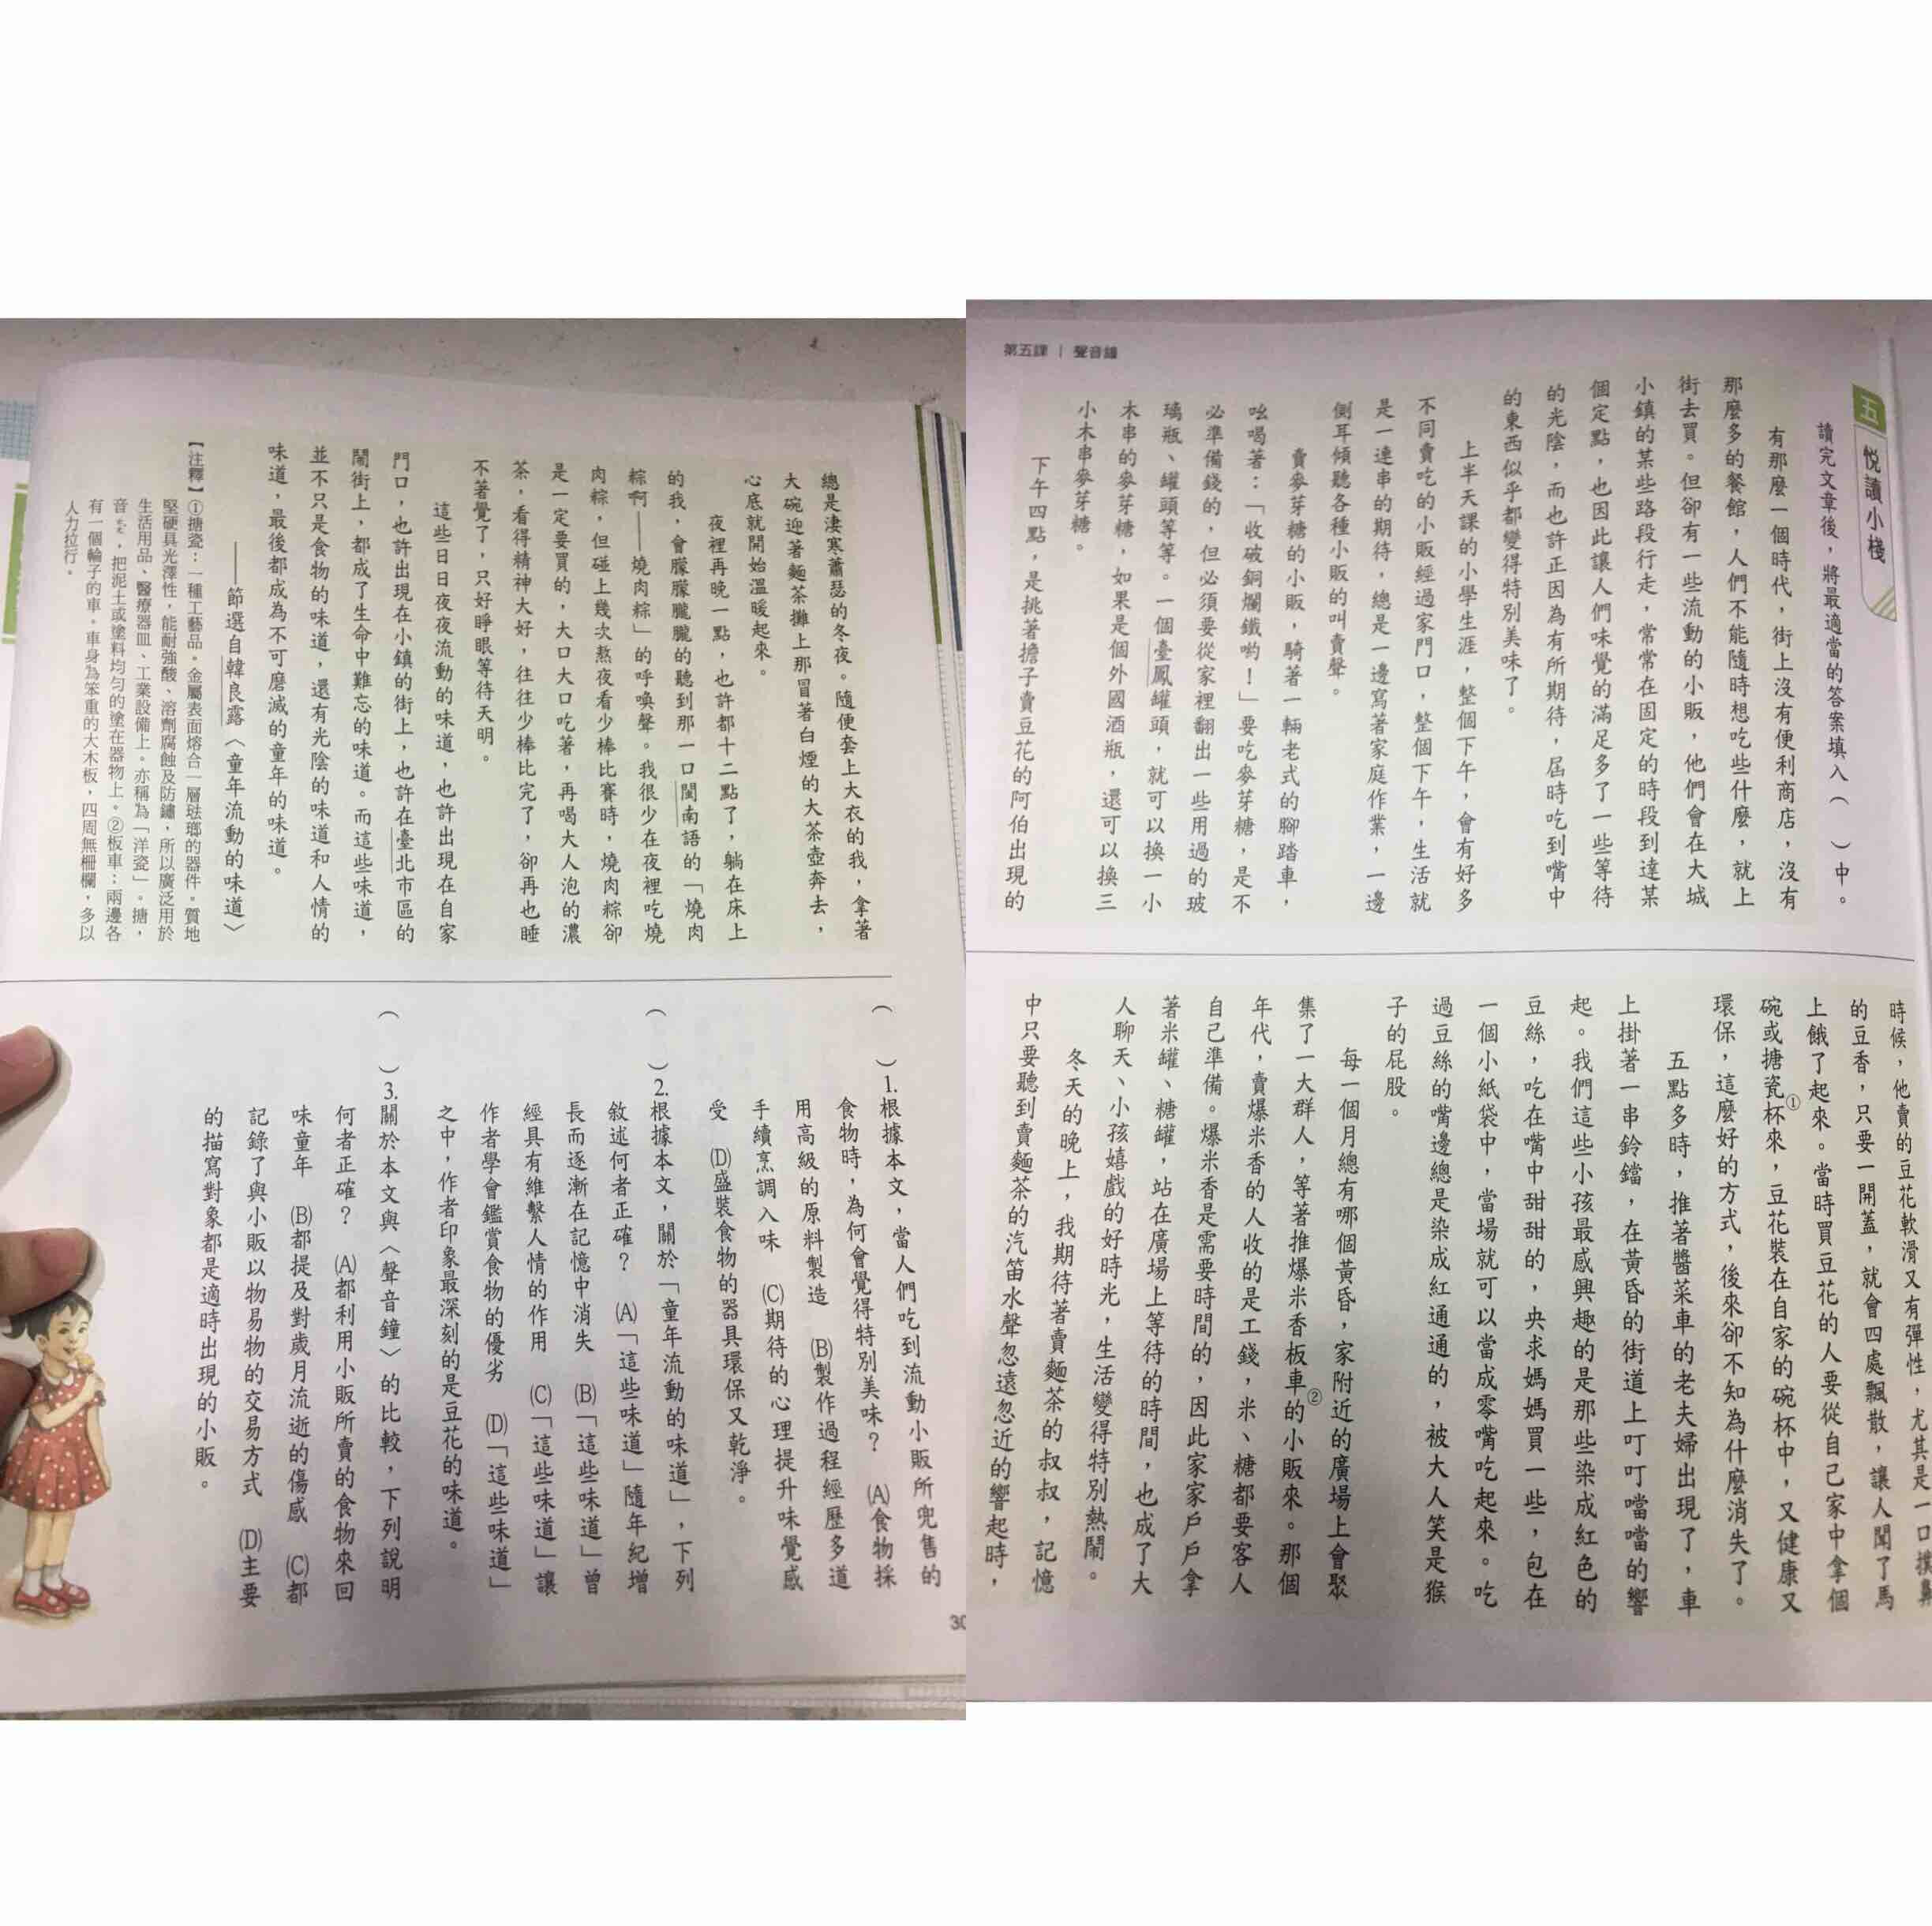 第五課｜聲音鐘
五 悅讀小棧
讀完文章後，將最適當的答案填入（　）中。
有那麼一個時代，街上沒有便利商店，沒有
那麼多的餐館，人們不能隨時想吃些什麼，就上
街去買。但卻有一些流動的小販，他們會在大城
小鎮的某些路段行走，常常在固定的時段到達某
個定點，也因此讓人們味覺的滿足多了一些等待
的光陰，而也許正因為有所期待，屆時吃到嘴中
的東西似乎都變得特別美味了。
上半天課的小學生涯，整個下午，會有好多
不同賣吃的小販經過家門口，整個下午，生活就
是一連串的期待，總是一邊寫著家庭作業，一邊
側耳傾聽各種小販的叫賣聲。
賣麥芽糖的小販，騎著一輛老式的腳踏車，
吆喝著：「收破銅爛鐵喲！」要吃麥芽糖，是不
必準備錢的，但必須要從家裡翻出一些用過的玻
璃瓶、罐頭等等。一個臺鳳罐頭，就可以換一小
木串的麥芽糖，如果是個外國酒瓶，還可以換三
小木串麥芽糖。
下午四點，是挑著擔子賣豆花的阿伯出現的
時候，他賣的豆花軟滑又有彈性，尤其是一口撲鼻
的豆香，只要一開蓋，就會四處飄散，讓人聞了馬
上餓了起來。當時買豆花的人要從自己家中拿個
碗或搪瓷①杯來，豆花裝在自家的碗杯中，又健康又
環保，這麼好的方式，後來卻不知為什麼消失了。
五點多時，推著醬菜車的老夫婦出現了，車
上掛著一串鈴鐺，在黃昏的街道上叮叮噹噹的響
起。我們這些小孩最感興趣的是那些染成紅色的
豆絲，吃在嘴中甜甜的，央求媽媽買一些，包在
一個小紙袋中，當場就可以當成零嘴吃起來。吃
過豆絲的嘴邊總是染成紅通通的，被大人笑是猴
子的屁股。
每一個月總有哪個黃昏，家附近的廣場上會聚
集了一大群人，等著推爆米香板車②的小販來。那個
年代，賣爆米香的人收的是工錢，米、糖都要客人
自己準備。爆米香是需要時間的，因此家家戶戶拿
著米罐、糖罐，站在廣場上等待的時間，也成了大
人聊天、小孩嬉戲的好時光，生活變得特別熱鬧。
冬天的晚上，我期待著賣麵茶的叔叔，記憶
中只要聽到賣麵茶的汽笛水聲忽遠忽近的響起時，
總是淒寒蕭瑟的冬夜。隨便套上大衣的我，拿著
大碗迎著麵茶攤上那冒著白煙的大茶壺奔去，
心底就開始溫暖起來。
夜裡再晚一點，也許都十二點了，躺在床上
的我，會朦朦朧朧的聽到那一口閩南語的「燒肉
粽啊——燒肉粽」的呼喚聲。我很少在夜裡吃燒
肉粽，但碰上幾次熬夜看少棒比賽時，燒肉粽卻
是一定要買的，大口大口吃著，再喝大人泡的濃
茶，看得精神大好，往往少棒比完了，卻再也睡
不著覺了，只好睜眼等待天明。
這些日日夜夜流動的味道，也許出現在自家
門口，也許出現在小鎮的街上，也許在臺北市區的
鬧街上，都成了生命中難忘的味道。而這些味道，
並不只是食物的味道，還有光陰的味道和人情的
味道，最後都成為不可磨滅的童年的味道。
——節選自韓良露〈童年流動的味道〉
【注釋】①搪瓷：一種工藝品。金屬表面熔合一層琺瑯的器件。質地
堅硬具光澤性，能耐強酸、溶劑腐蝕及防鏽，所以廣泛用於
生活用品、醫療器皿、工業設備上。亦稱為「洋瓷」。搪，
音ㄊㄤˊ，把泥土或塗料均勻的塗在器物上。②板車：兩邊各
有一個輪子的車。車身為笨重的大木板，四周無柵欄，多以
人力拉行。
（　）1.根據本文，當人們吃到流動小販所兜售的
食物時，為何會覺得特別美味？　(A)食物採
用高級的原料製造　(B)製作過程經歷多道
手續烹調入味　(C)期待的心理提升味覺感
受　(D)盛裝食物的器具環保又乾淨。
（　）2.根據本文，關於「童年流動的味道」，下列
敘述何者正確？　(A)「這些味道」隨年紀增
長而逐漸在記憶中消失　(B)「這些味道」曾
經具有維繫人情的作用　(C)「這些味道」讓
作者學會鑑賞食物的優劣　(D)「這些味道」
之中，作者印象最深刻的是豆花的味道。
（　）3.關於本文與〈聲音鐘〉的比較，下列說明
何者正確？　(A)都利用小販所賣的食物來回
味童年　(B)都提及對歲月流逝的傷感　(C)都
記錄了與小販以物易物的交易方式　(D)主要
的描寫對象都是適時出現的小販。
30